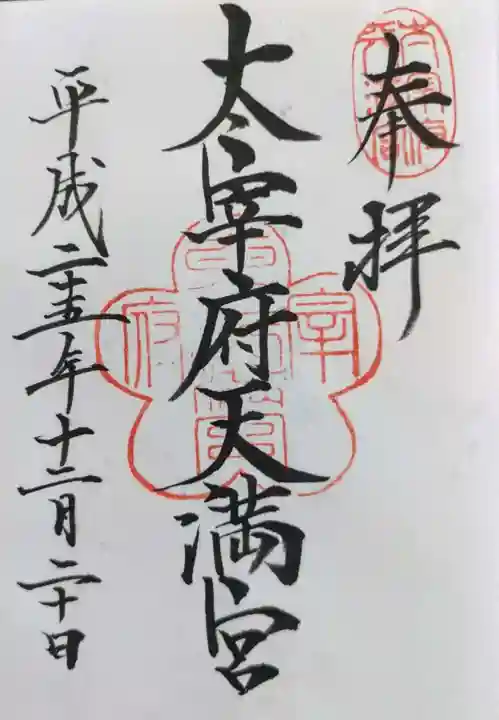 奉拝
太宰府天満宮
平成二十五年十二月二十日
宰
府